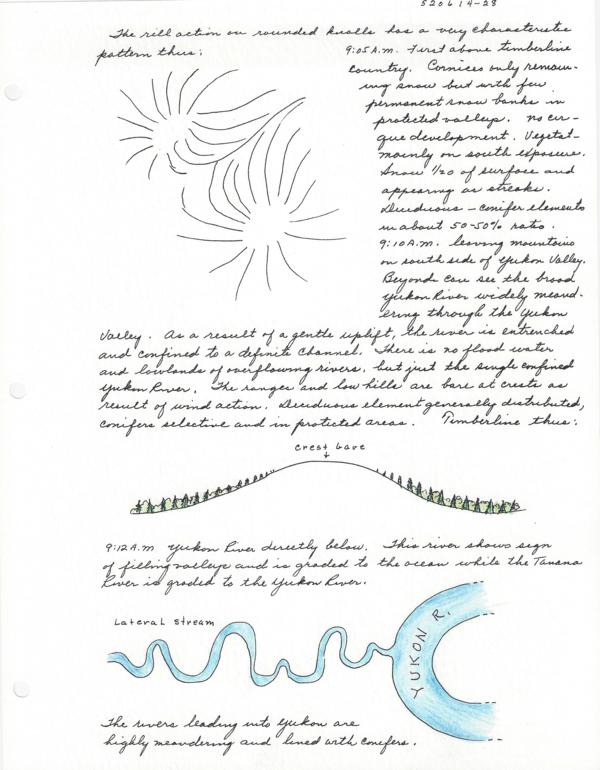 520614-28
The rill action on rounded knolls has a very characteristic
pattern thus:
9:05 A.M. First above timberline
country. Cornices only remain-
ing snow but with few
permanent snow banks in
protected valleys. No cir-
que development. Vegetat-
mainly on south exposure.
Snow 1/20 of surface and
appearing as streaks.
Deciduous-conifer elements
in about 50-50% ratio.
9:10 A.M. leaving mountains
on south side of Yukon Valley.
Beyond can see the broad
Yukon River widely meand-
ering through the Yukon
Valley. As a result of a gentle uplift, the river is entrenched
and confined to a definite channel. There is no flood water
and lowlands of overflowing rivers, but just the single confined
Yukon River. The ranges and low hills are bare at crests as
result of wind action. Deciduous element generally distributed,
conifers selective and in protected areas. Timberline thus:
crest bare
9:12 A.M. Yukon River directly below. This river shows sign
of filling valleys and is graded to the ocean while the Tanana
River is graded to the Yukon River.
Lateral stream
YUKON R.
The rivers leading into Yukon are
highly meandering and lined with conifers.